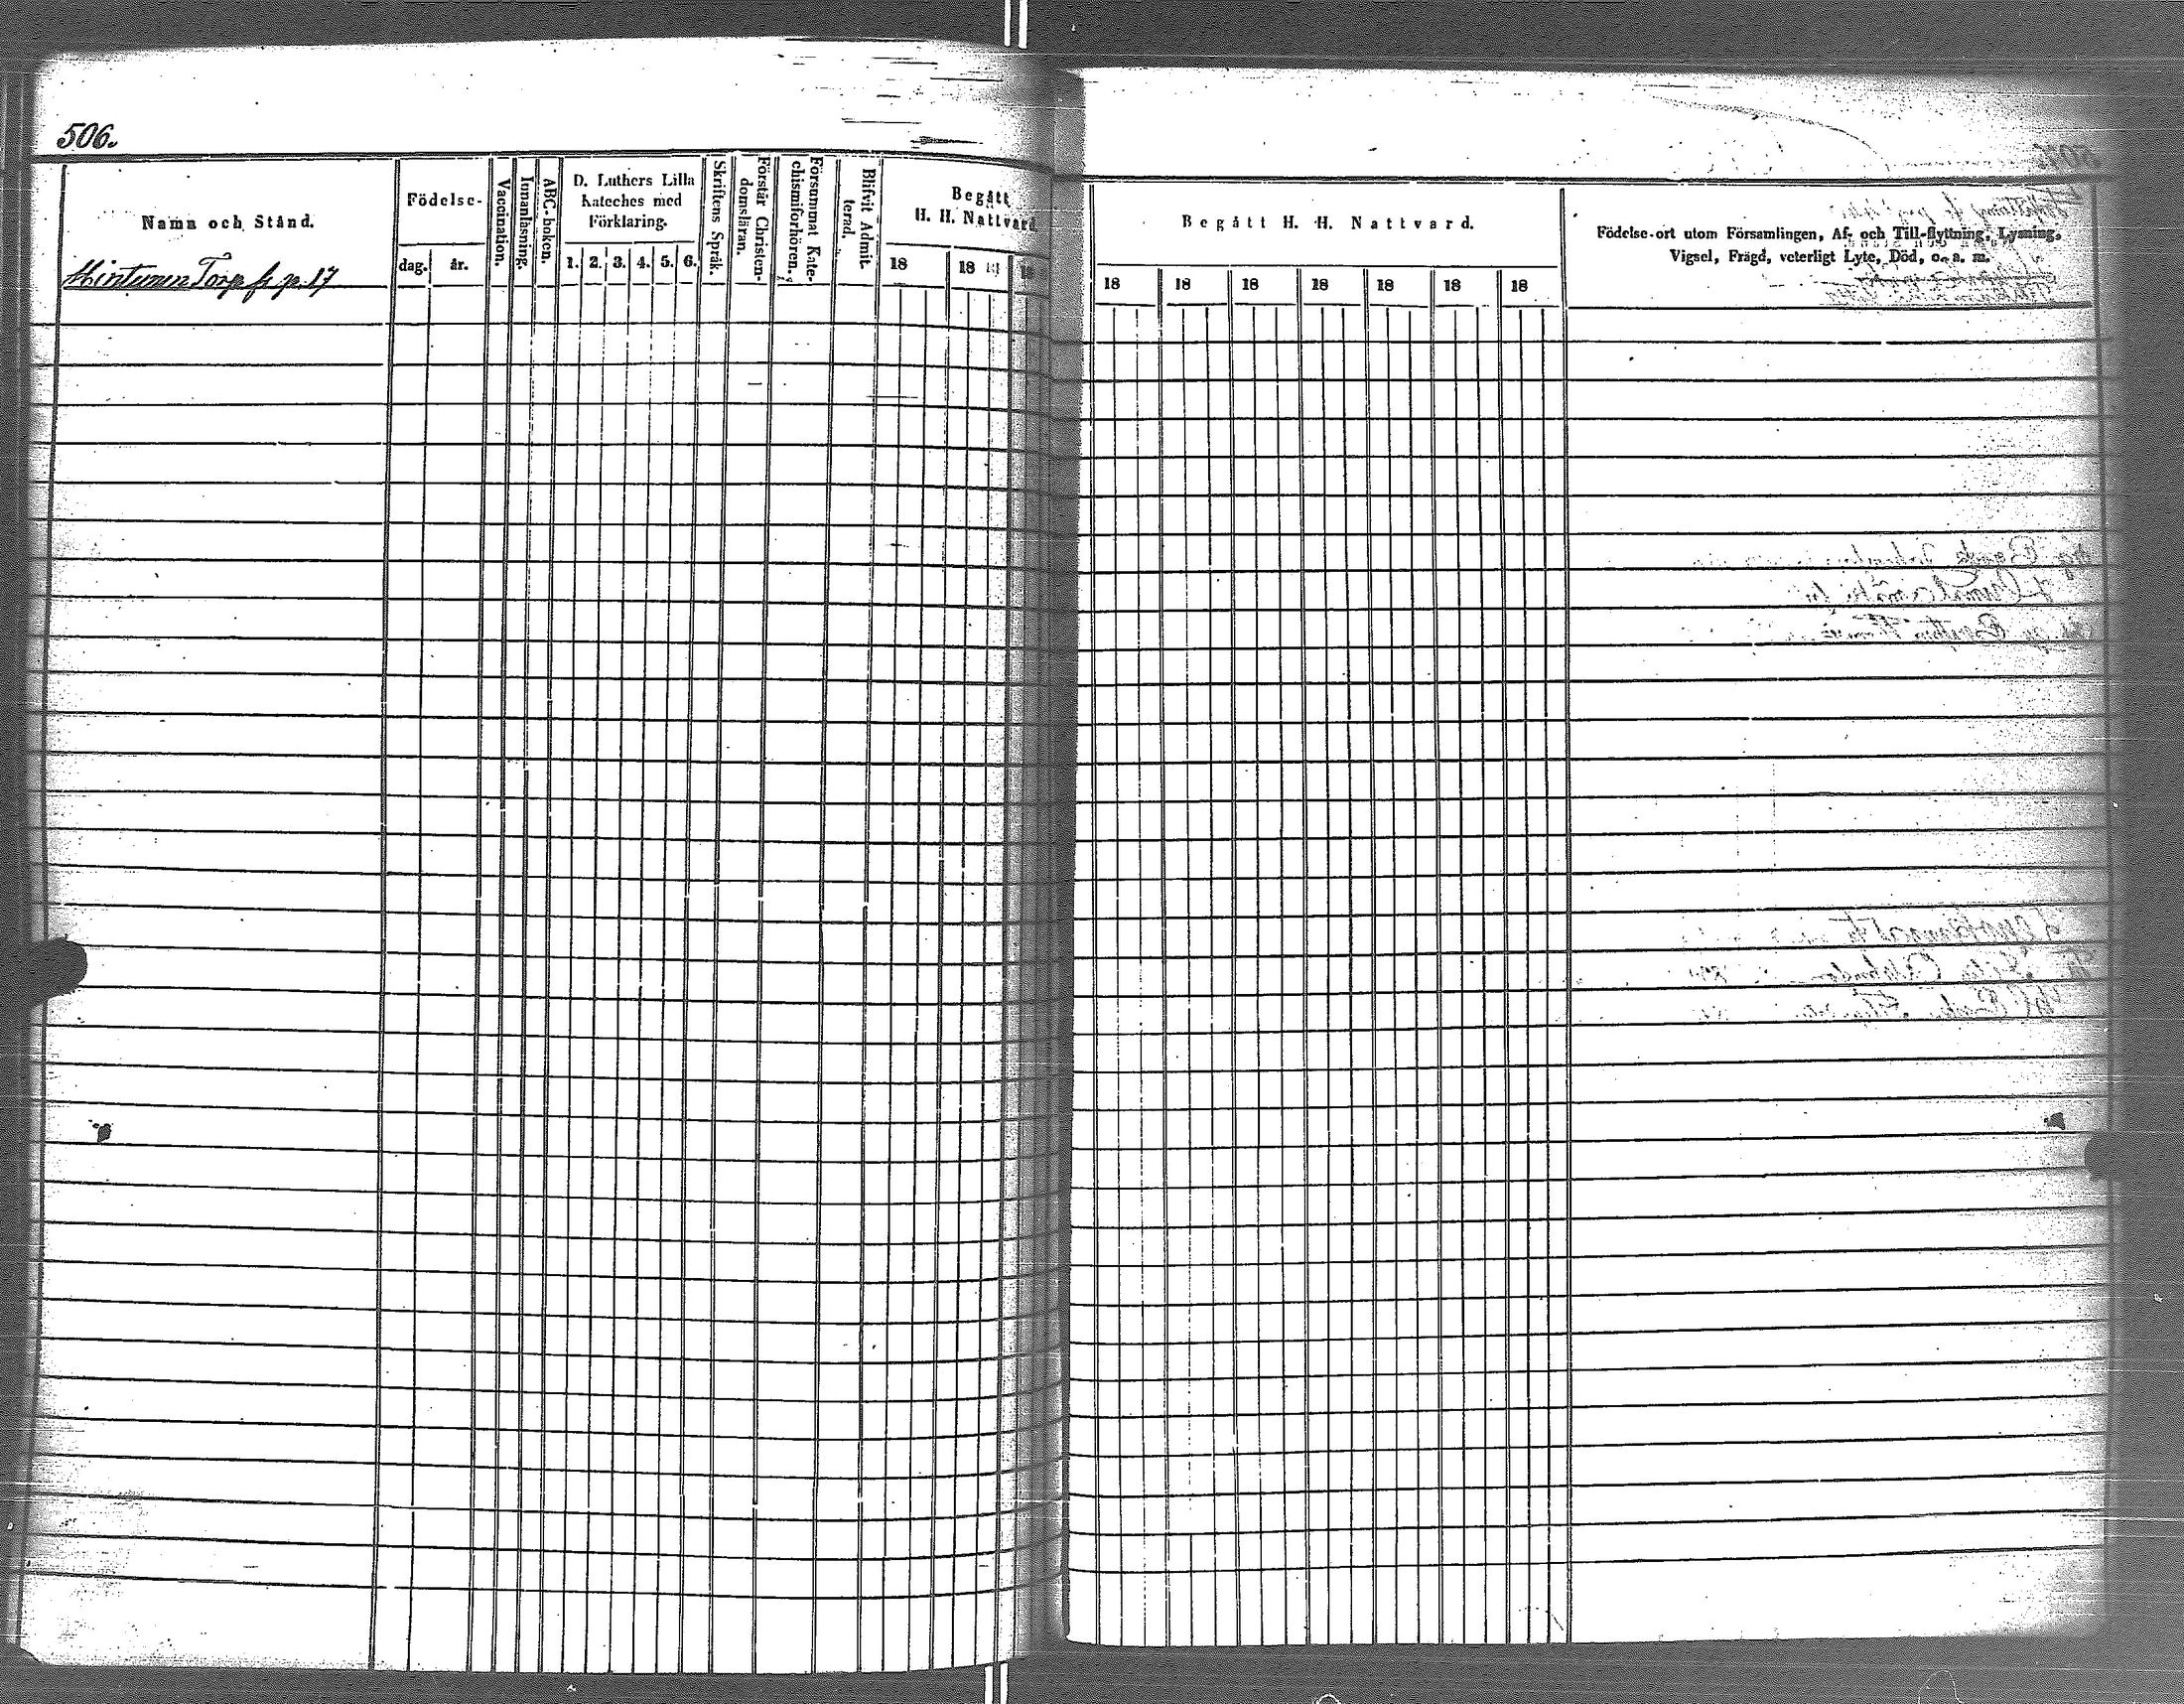 506.
Namn och Stånd.
Födelse-
dag.
år.
Vaccination.
Innanläsning.
ABC-boken.
D. Luthers Lilla
Kateches med
Förklaring.
1. 2. 3. 4. 5. 6.
Skriftens Språk.
Förstår Christen-
domsläran.
Försummat Kate-
chismiförhören.
Blifvit Admit-
terad.
Begått
H. H. Nattvard.
18 18 18
Torp fr p. 17
Begått H. H. Nattvard.
18 18 18 18 18 18 18
Födelse-ort utom Församlingen, Af- och Till-flyttning, Lysning,
Vigsel, Frägd, veterligt Lyte, Död, o. a. m.